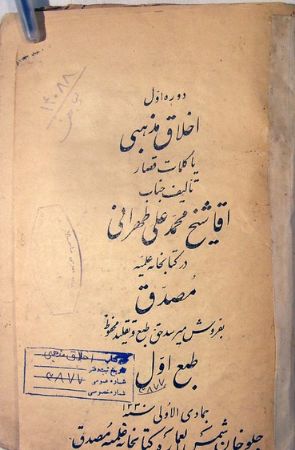 ۱۴۰۸۸
دوره اول
اخلاق مذهبی
یا کلمات قصار
تألیف جناب
آقا شیخ محمد علی طهرانی
در کتابخانه علمیه
مصدق
بفروش میرسد حق طبع و تقلید محفوظ
طبع اول
جمادی الأولی سنه ۱۳۳۰
جلوخان شمس العماره کتابخانه علمیه مصدق
کتاب اخلاق مذهبی
تاریخ ثبت دفتر
شماره عمومی ۳۸۷۷
شماره خصوصی
۳۸۷۷